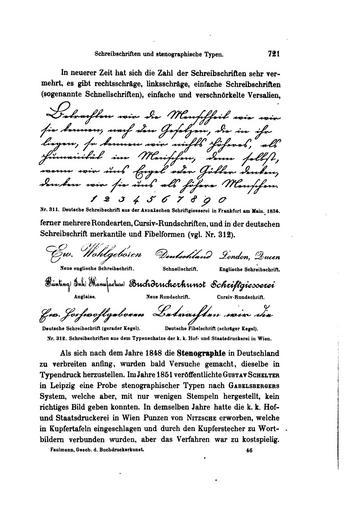 Schreibschriften und stenographische Typen. 721
In neuerer Zeit hat sich die Zahl der Schreibschriften sehr ver-
mehrt, es gibt rechtsschräge, linksschräge, einfache Schreibschriften
(sogenannte Schnellschriften), einfache und verschnörkelte Versalien,
Betrachten wir die Menschheit wie wir
sie kennen, nach den Gesetzen, die in ihr
liegen, so kennen wir nichts höheres, als
Humanität im Menschen, denn selbst,
wenn wir uns Engel oder Götter denken,
denken wir sie uns als höhere Menschen.
1 2 3 4 5 6 7 8 9 0
Nr. 311. Deutsche Schreibschrift aus der Andreäischen Schriftgiesserei in Frankfurt am Main, 1834.
ferner mehrere Rondearten, Cursiv-Rundschriften, und in der deutschen
Schreibschrift merkantile und Fibelformen (vgl. Nr. 312).
Ew. Wohlgeboren Deutschland London, Queen
Neue englische Schreibschrift. Schnellschrift. Englische Schreibschrift.
Buchdruckerkunst Schriftgiesserei
Anglaise. Neue Rondschrift. Cursiv-Rondschrift.
Ew. Hochwohlgeboren Betrachten wir die
Deutsche Schreibschrift (gerader Kegel). Deutsche Fibelschrift (schräger Kegel).
Nr. 312. Schreibschriften aus dem Typenschatze der k. k. Hof- und Staatsdruckerei in Wien.
Als sich nach dem Jahre 1848 die Stenographie in Deutschland
zu verbreiten anfing, wurden bald Versuche gemacht, dieselbe in
Typendruck herzustellen. Im Jahre 1851 veröffentlichte GUSTAV SCHELTER
in Leipzig eine Probe stenographischer Typen nach GABELSBERGERS
System, welche aber, mit nur wenigen Stempeln hergestellt, kein
richtiges Bild geben konnten. In demselben Jahre hatte die k. k. Hof-
und Staatsdruckerei in Wien Punzen von NITZSCHE erworben, welche
in Kupfertafeln eingeschlagen und durch den Kupferstecher zu Wort-
bildern verbunden wurden, aber das Verfahren war zu kostspielig.
Faulmann, Gesch. d. Buchdruckerkunst. 46